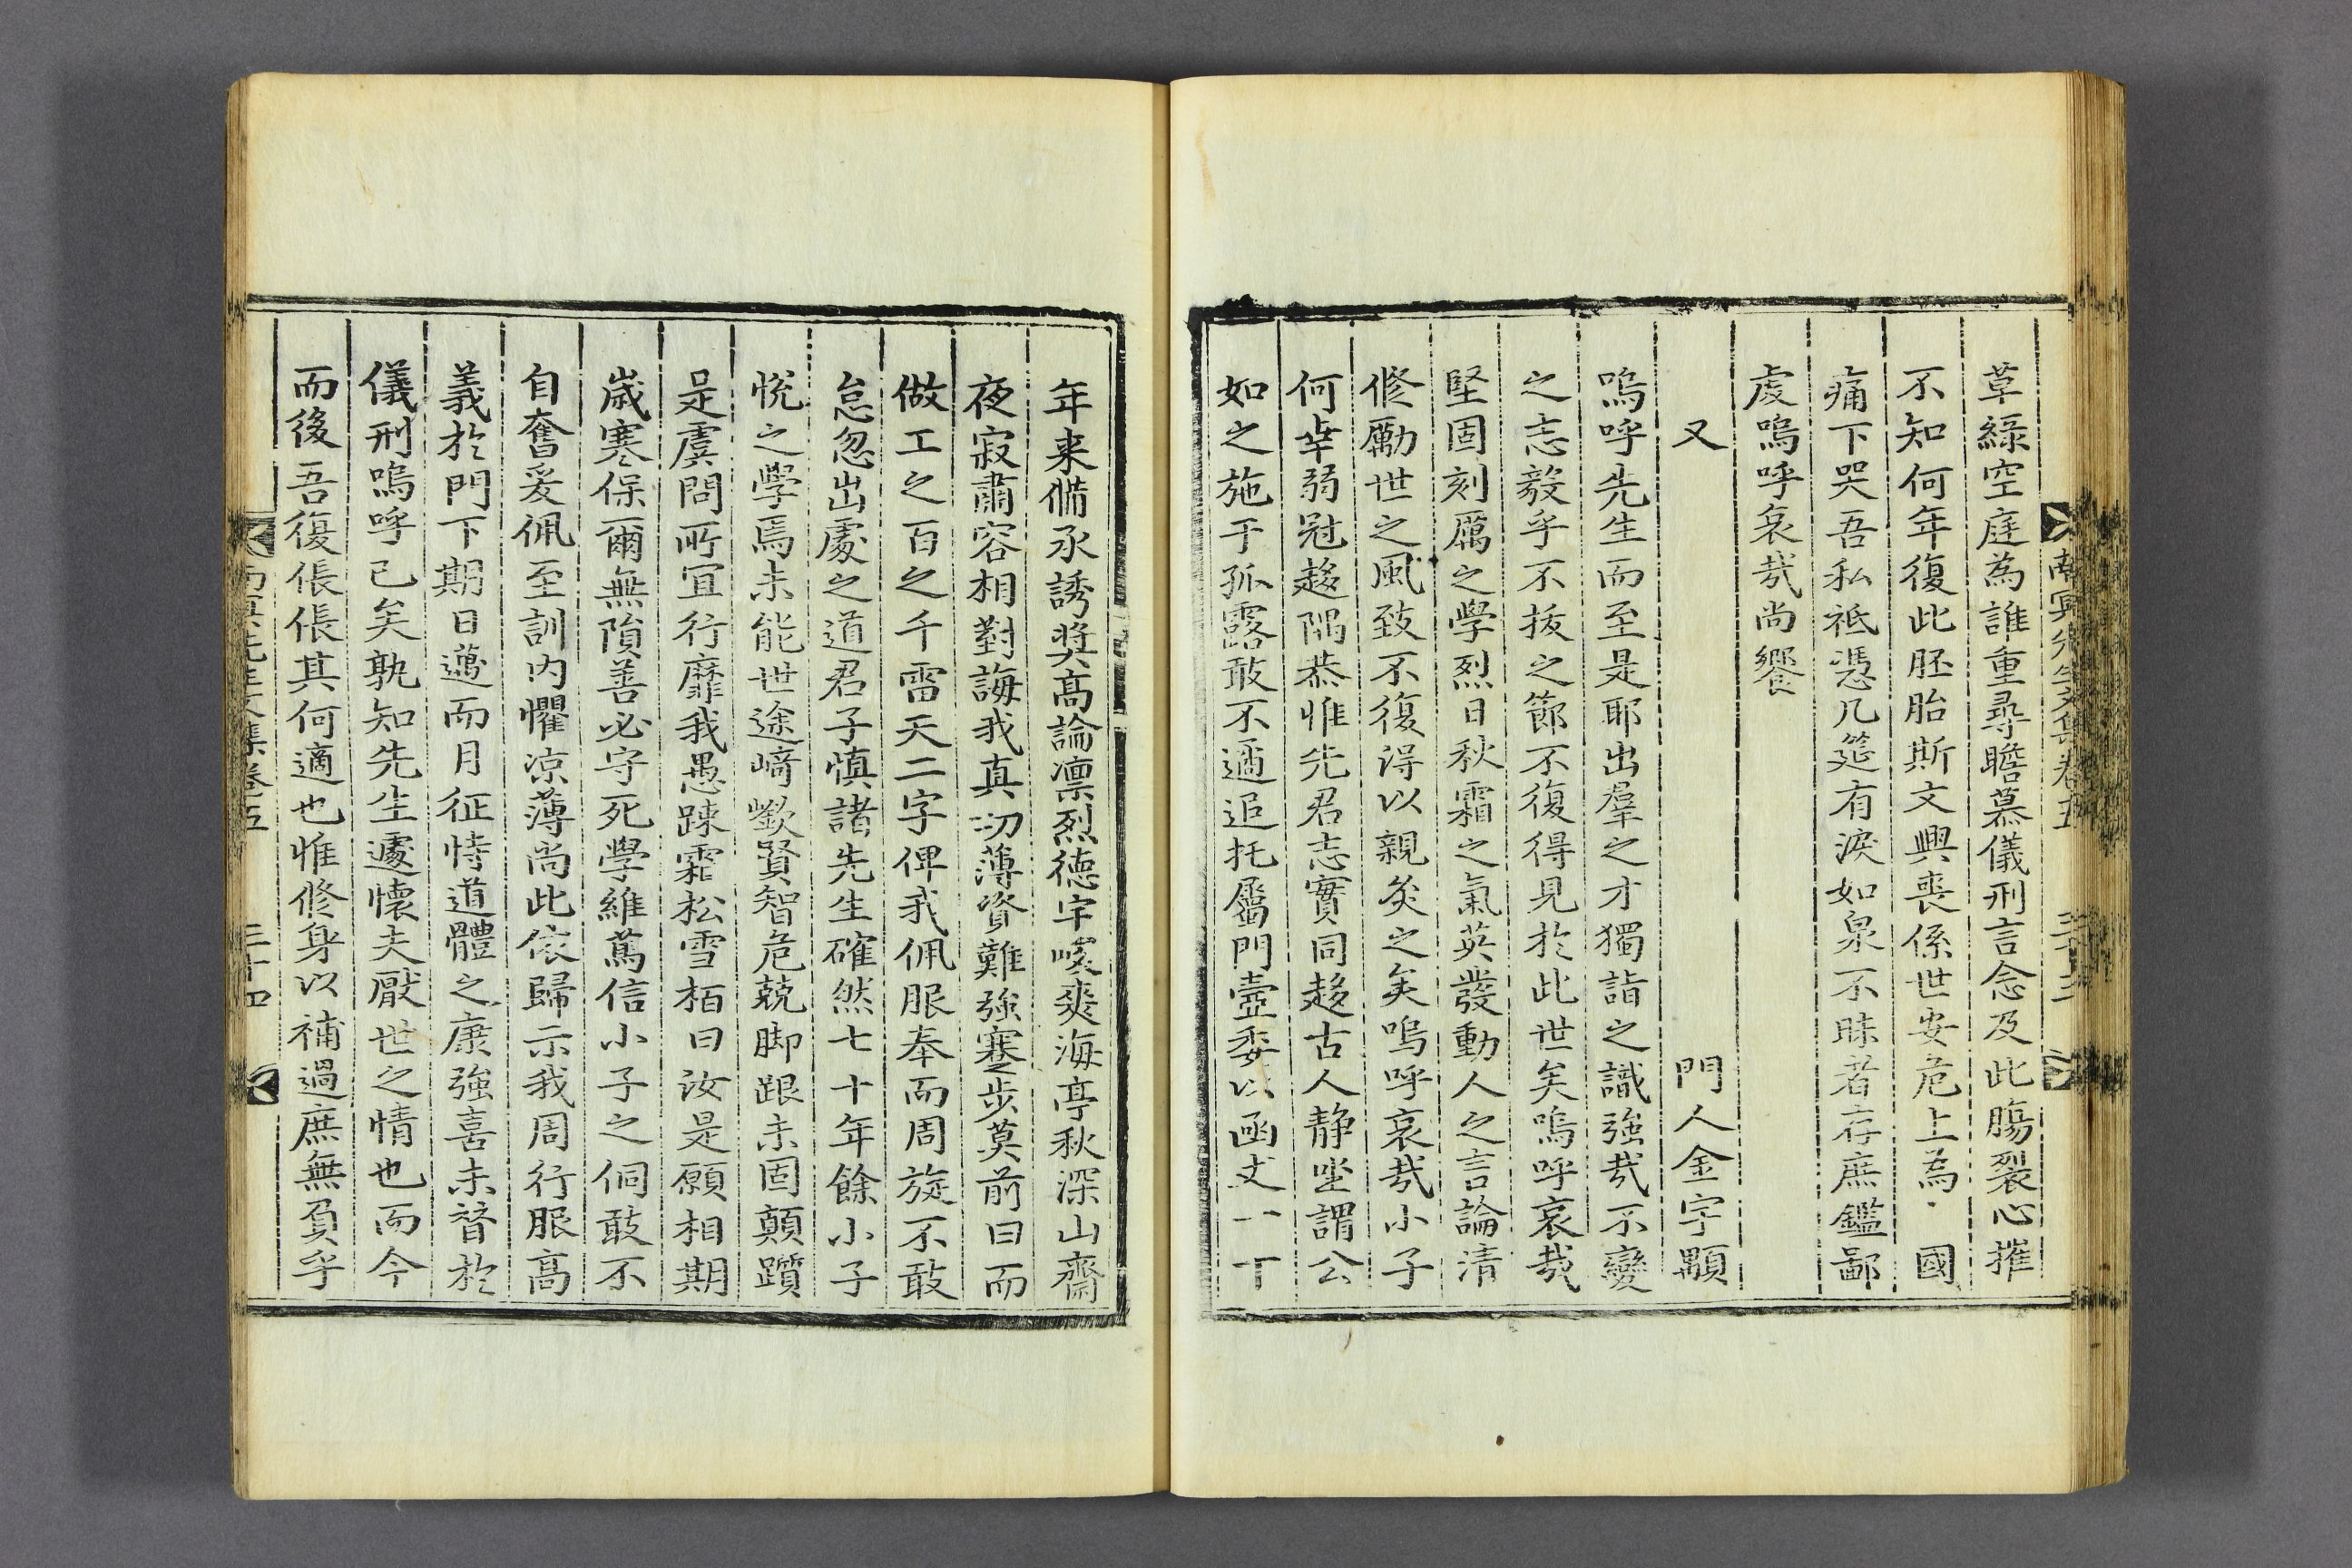 南冥先生文集卷五
草綠空庭為誰重尋瞻慕儀刑言念及此膓裂心摧
不知何年復此胚胎斯文興喪係世安危上為國
痛下哭吾私祗憑几筵有淚如泉不昧者存庶鑑鄙
虔嗚呼哀哉尚饗
又 門人金宇顒
嗚呼先生而至是耶出羣之才獨詣之識強哉不變
之志毅乎不拔之節不復得見於此世矣嗚呼哀哉
堅固刻厲之學烈日秋霜之氣英發動人之言論清
修勵世之風致不復得以親炙之矣嗚呼哀哉小子
何幸弱冠趍隅恭惟先君志實同趍古人静坐謂公
如之施于孤露敢不遹追托屬門壼委以函丈一十
年来備承誘奬高論凛烈德宇峻爽海亭秋深山齋
夜寂肅容相對誨我真切薄資難強蹇步莫前曰而
做工之百之千雷天二字俾我佩服奉而周旋不敢
怠忽出處之道君子慎諸先生確然七十年餘小子
悅之學焉未能世途﨑嶔賢智危兢脚跟未固顛躓
是虞問所宜行靡我愚踈霜松雪栢曰汝是願相期
歲寒保爾無隕善必守死學維篤信小子之侗敢不
自奮爰佩至訓内懼凉薄尚此依歸示我周行服高
義於門下期日邁而月征恃道體之康強喜未瞀於
儀刑嗚呼已矣孰知先生遽懷夫厭世之情也而今
而後吾復倀倀其何適也惟修身以補過庶無負乎
南冥先生文集卷五 三十四